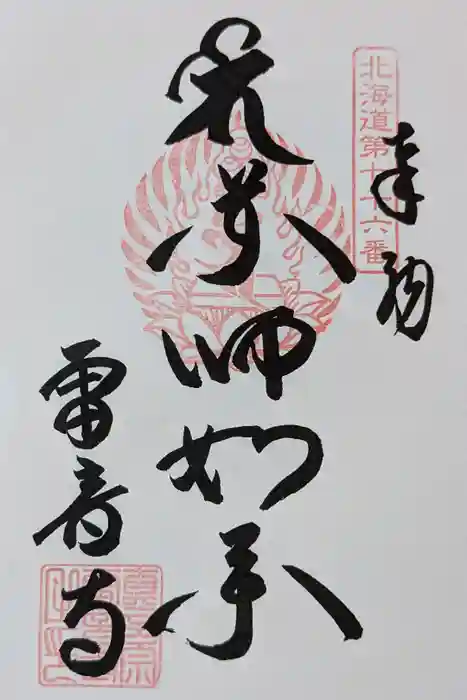 北海道第七十六番
奉納
薬師如来
雷音寺